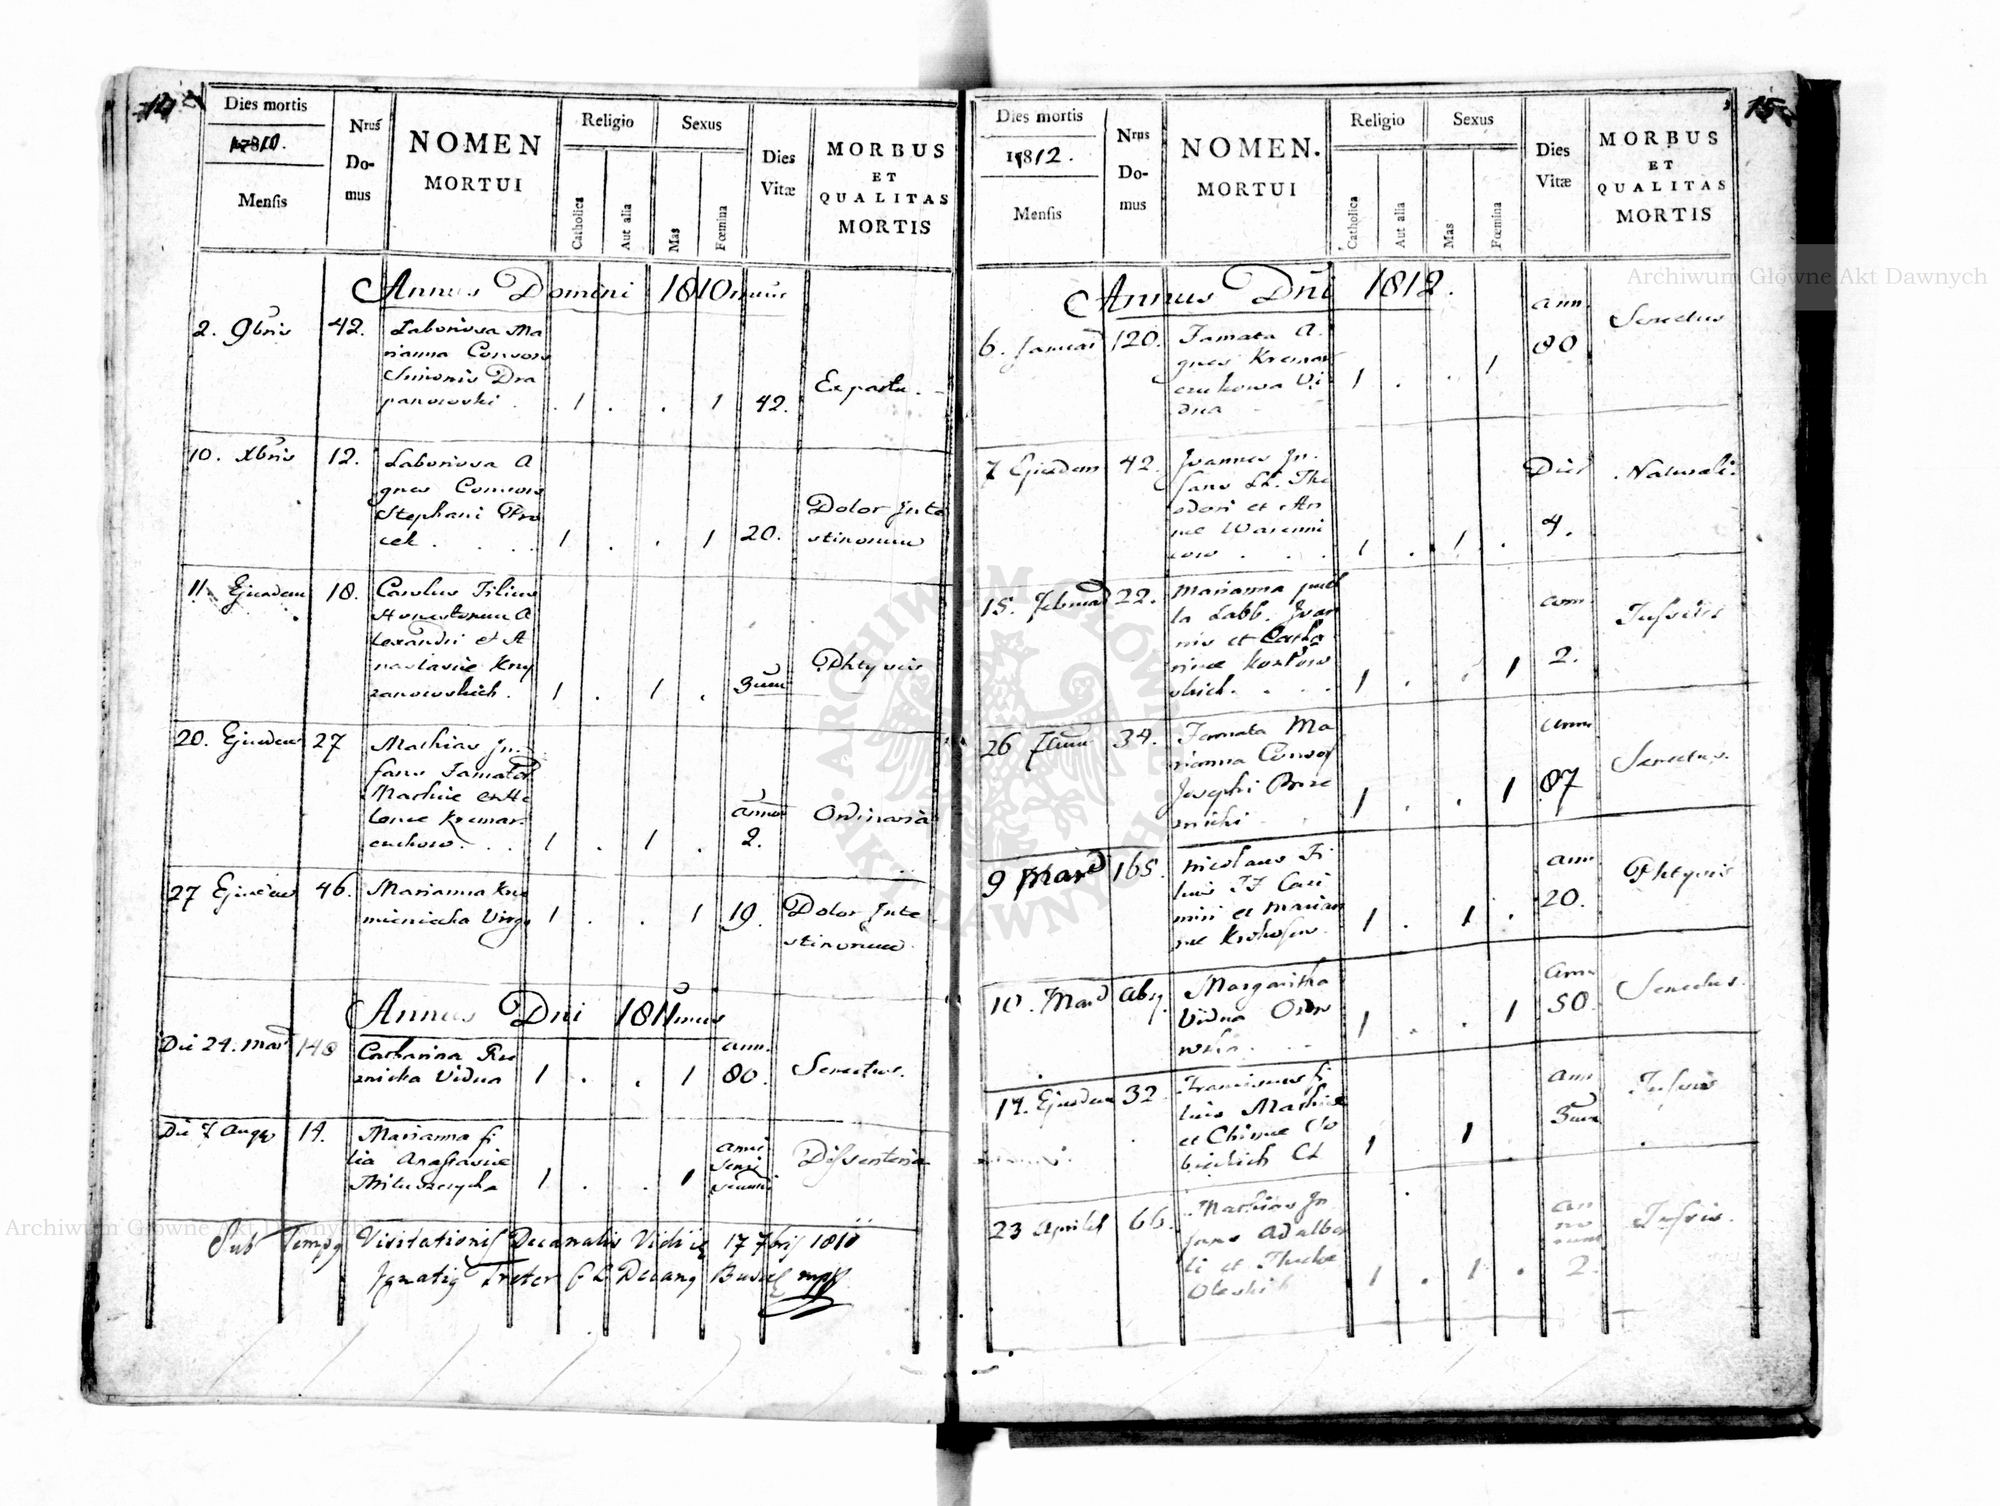 14
Dies mortis
1810.
Mensis
Nrus Do- mus
NOMEN
MORTUI
Religio
Catholica
Aut alia
Sexus
Mas
Fœmina
Dies
Vitæ
MORBUS
ET
QUALITAS
MORTIS
Annus Domini 1810mus
2. 9bris 42. Laboriosa Ma
rianna Consors
Simonis Dra
panowski . 1 . . 1 42. Ex partu.
10. Xbris 12. Laboriosa A
gnes Consors
Stephani
cek . . . 1 . . 1 20. Dolor Inte
stinorum
11. Ejusdem 18. Carolus Filius
Honestorum A
lexandri et A
nastasiæ Krzy
zanowskich . 1 . 1 . 3um Phtysis
20. Ejusdem 27 Mathias In
fans Famator
Mathiæ et He
lenæ Kremar
czukow . . . 1 . 1 . anno 2. Ordinaria
27 Ejusdem 46. Marianna Krze
mieniecka Virgo 1 . . 1 19. Dolor Inte
stinorum
Annus Dni 1811mus
Die 24. Mar 148 Catharina
Vidua 1 . . 1 ann. 80. Senectus.
Die 7 Aug 14. Marianna fi
lia Anastasiæ
1 . . 1 anni Dissenteria
Sub Tempg Visitationis Decanalis Vidi ie 17 7bris 1810
Ignatig Treter Decang Buscc mpp
15
Dies mortis
1812.
Mensis
Nrus Do- mus
NOMEN.
MORTUI
Religio
Catholica
Aut alia
Sexus
Mas
Fœmina
Dies
Vitæ
MORBUS
ET
QUALITAS
MORTIS
Annus Dni 1812.
6. Januar 120. Famata A
gnes Kremar
czukowa Vi
dua 1 . . 1 ann 80 Senectus
7 Ejusdem 42. Joannes In
fans LL. The
odori et An
næ
1 . 1 . Dies 4. Naturalis.
15. Februar 22. Marianna puel
la Labb. Joan
nis et Catha
rinæ Kozlow
skich. . . . 1 . . 1 ann 2. Tussis
26 34. Famata Ma
rianna Consors
Josephi
1 . . 1 ann 87 Senectus.
9 Mar 165. Nicolaus Fi
lius FF Casi
miri et Marian
næ 1 . 1 . ann 20. Phtysis
10. Mar Margaritha
Vidua
1 . . 1 ann 50. Senectus.
14. Ejusdem 32. Franciscus fi
lius Mathiæ
et
1 1 ann 3um Tussis
23 Aprilis 66. Mathias In
fans Adalber
ti et Theclæ
Oleski 1 . 1 . an
no
rum
2. Tussis.
Archiwum Główne Akt Dawnych
Archiwum Główne Akt Dawnych
ARCHIWUM GŁÓWNE AKT DAWNYCH